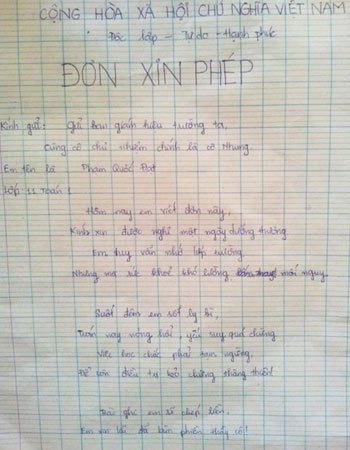 CỘNG HÒA XÃ HỘI CHỦ NGHĨA VIỆT NAM
Độc lập - Tự do - Hạnh phúc
ĐƠN XIN PHÉP
Kính gửi: Gửi ban giám hiệu trường ta,
Cùng cô chủ nhiệm chính là cô Nhung.
Em tên là Phạm Quốc Đạt
Lớp: 11 Toán 1
Hôm nay em viết đơn này,
Kính xin được nghỉ một ngày dưỡng thương
Em tuy vẫn nhớ lớp trường
Nhưng mà sức khoẻ khó lường, mối nguy.
Suốt đêm em sốt ly bì,
Tuần này nóng hổi, yếu suy quá chừng
Việc học chắc phải tạm ngừng,
Để còn điều trị kẻo chừng thăng thiên!
Bài ghi em sẽ chép liền,
Em xin lỗi đã làm phiền thầy cô!